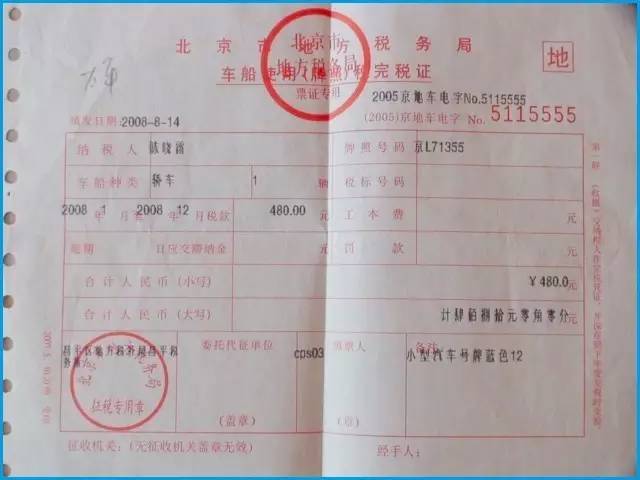 北京市地方税务局
车船使用(牌照)税完税证
北京市
地方税务局
票证专用
地
2005京地车电字No.5115555
(2005)京地车电字 No. 5115555
填发日期: 2008-8-14
纳税人 陈晓 牌照号码 京L71355
车船种类 轿车 1 辆 税标号码
2008 年 1 月至 2008 年 12 月税款 480.00 元 工本费 元
逾期 日应交滞纳金 元 罚款 元
合计人民币(小写) ¥480.0 元
合计人民币(大写) 计肆佰捌拾元零角零分
昌平区地方税务局昌平税务所
征税专用章
委托代征单位 cps03 填票人 备注
小型汽车号牌蓝色12
(盖章) (章)
征收机关: (无征收机关盖章无效) 经手人: